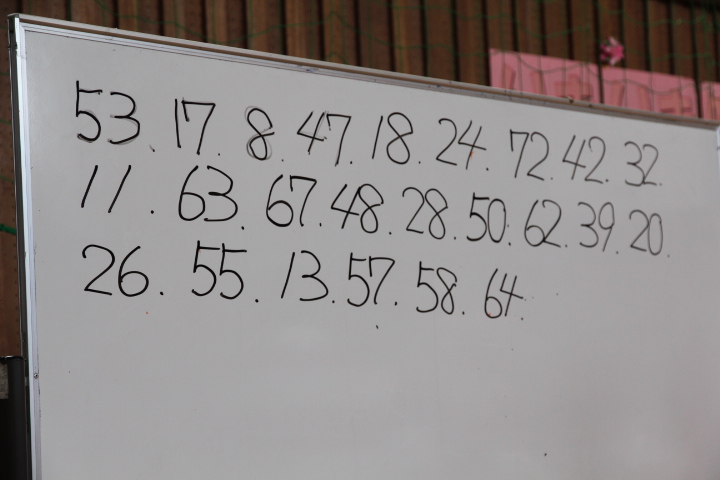 53.17.8.47.18.24.72.42.32.
11.63.67.48.28.50.62.39.20.
26.55.13.57.58.64.